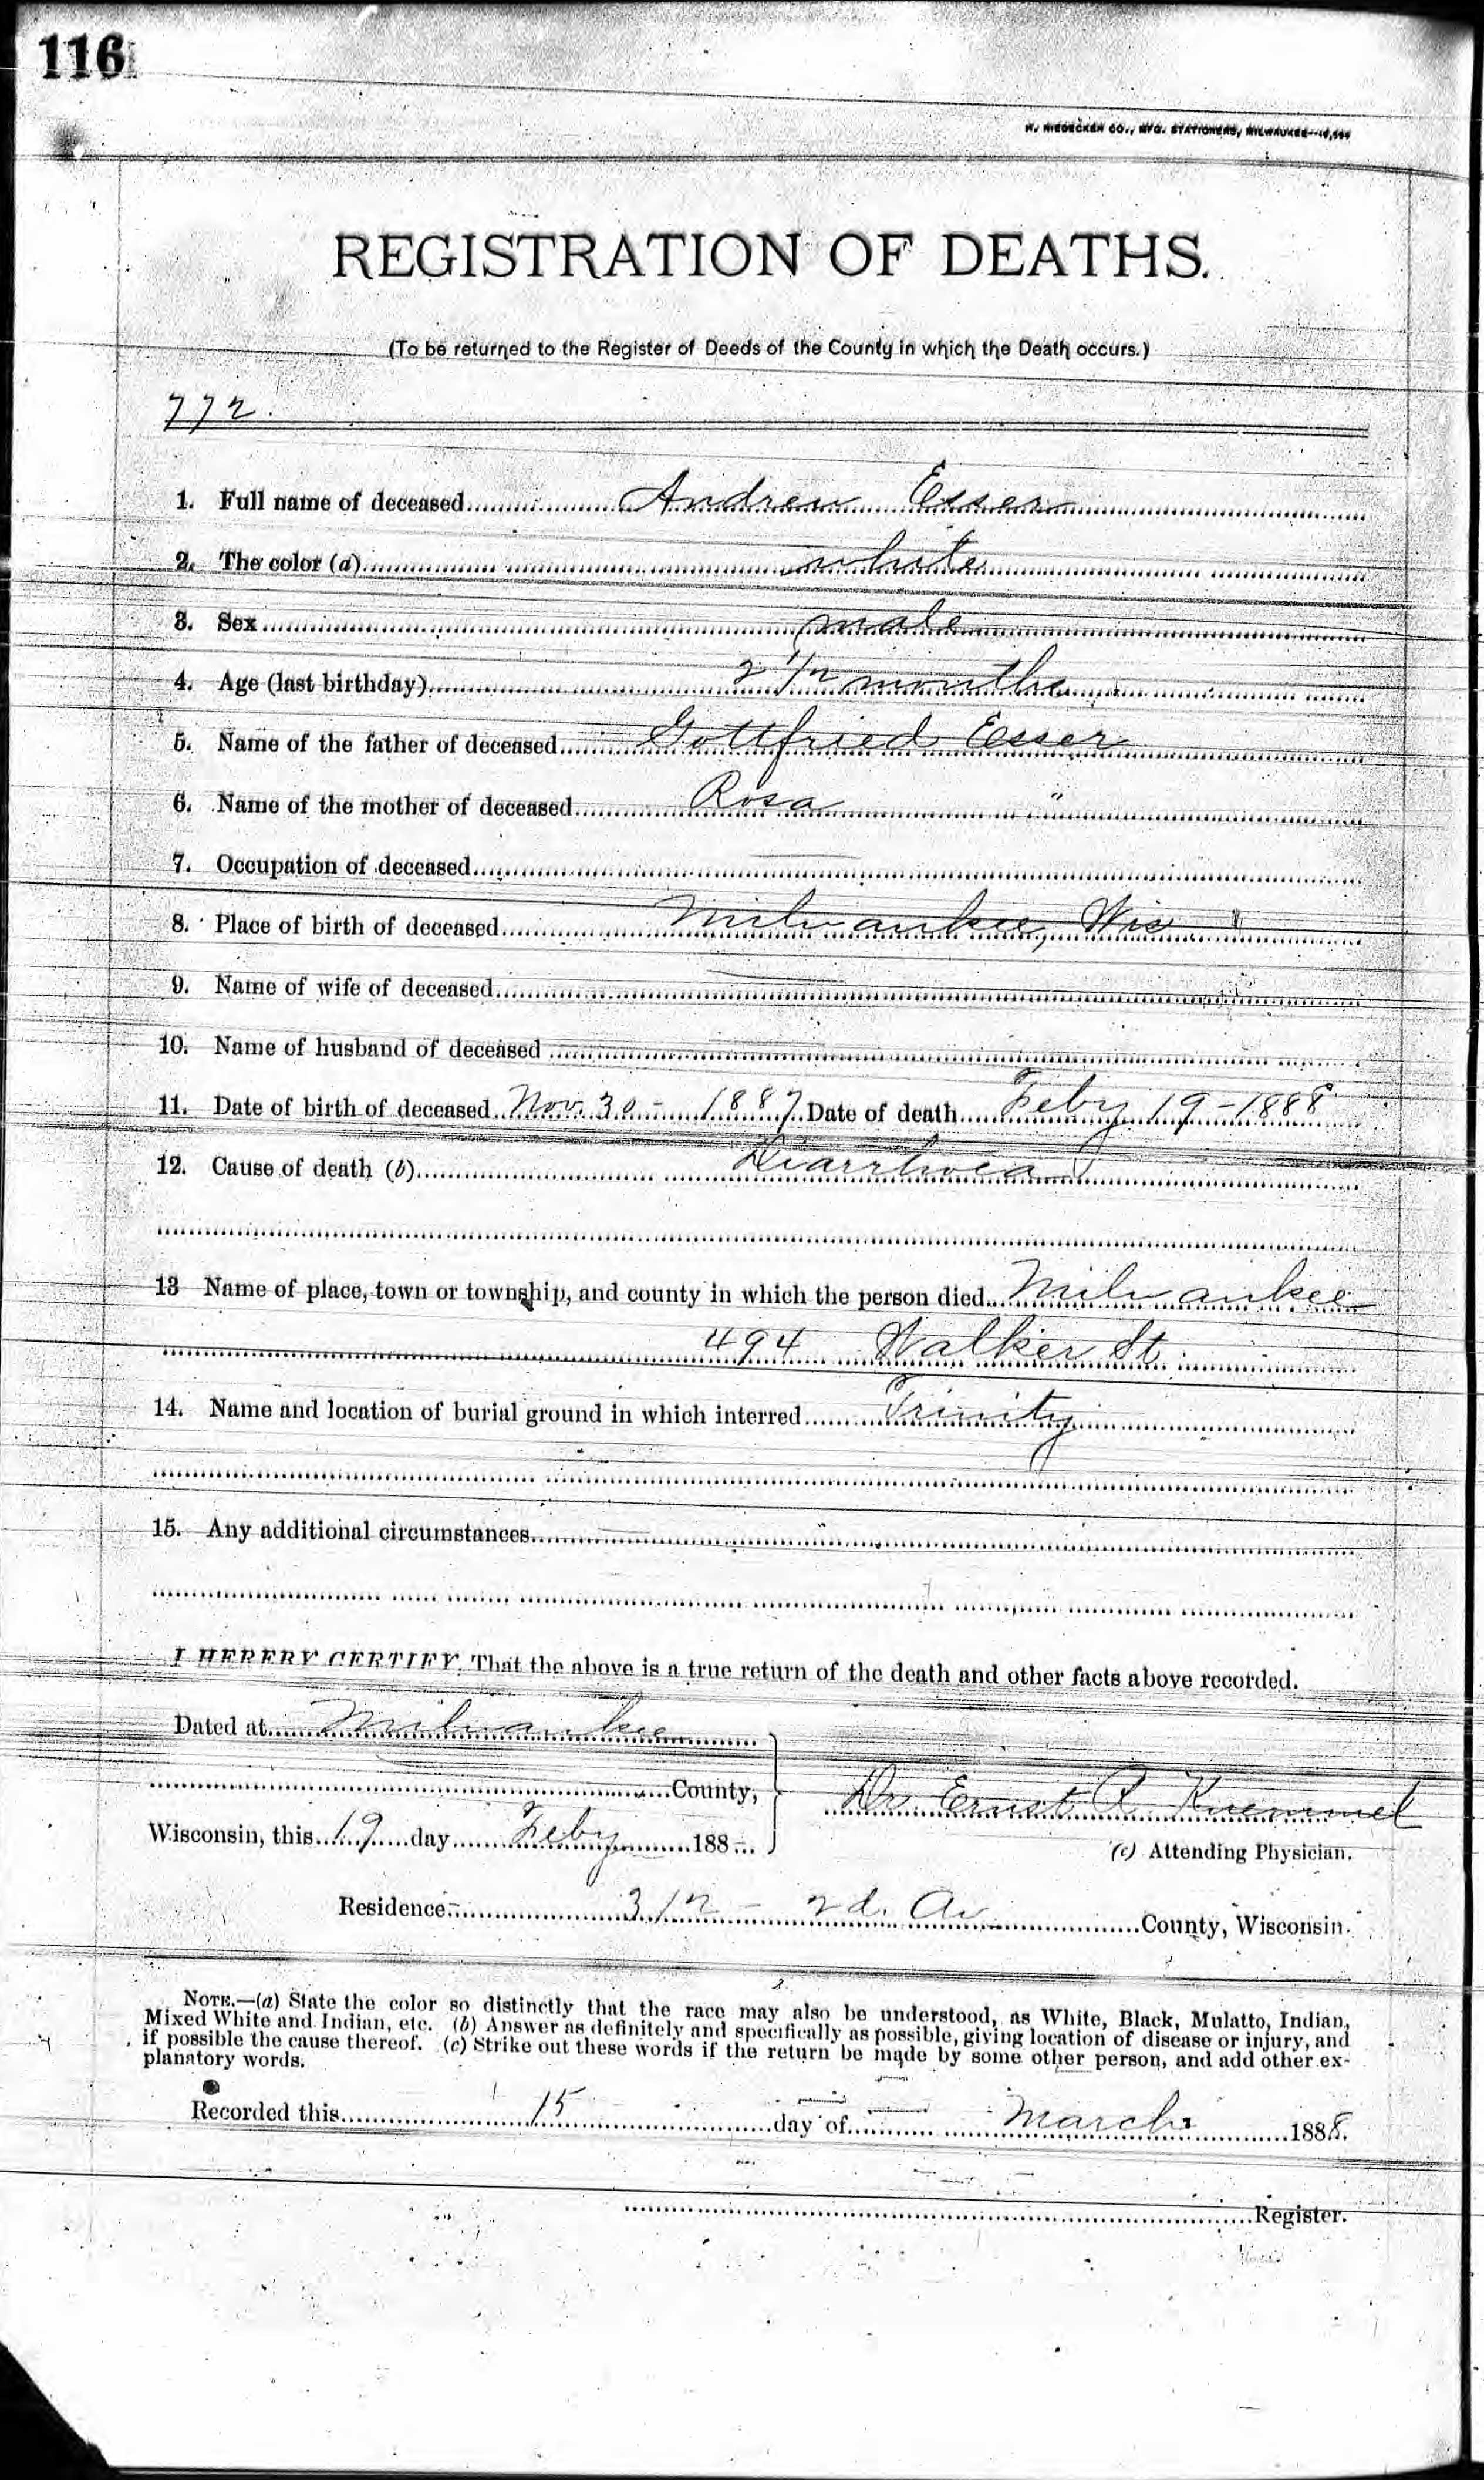 116
H. NIEDECKEN CO., MFG. STATIONERS, MILWAUKEE
REGISTRATION OF DEATHS.
(To be returned to the Register of Deeds of the County in which the Death occurs.)
772.
1. Full name of deceased Andrew Esser
2. The color (a) white
3. Sex male
4. Age (last birthday) 2 1/2 months
5. Name of the father of deceased Gottfried Esser
6. Name of the mother of deceased Rosa "
7. Occupation of deceased
8. Place of birth of deceased Milwaukee, Wis
9. Name of wife of deceased
10. Name of husband of deceased
11. Date of birth of deceased Nov. 30 - 1887 Date of death Feby 19 - 1888
12. Cause of death (b) Diarrhoea
13 Name of place, town or township, and county in which the person died Milwaukee
494 Walker St.
14. Name and location of burial ground in which interred Trinity
15. Any additional circumstances
I HEREBY CERTIFY, That the above is a true return of the death and other facts above recorded.
Dated at Milwaukee
County, Dr. Ernst A. Kuemmel
Wisconsin, this 19 day Feby 188
(c) Attending Physician.
Residence 312 - 2d. Av County, Wisconsin.
NOTE.—(a) State the color so distinctly that the race may also be understood, as White, Black, Mulatto, Indian,
Mixed White and Indian, etc. (b) Answer as definitely and specifically as possible, giving location of disease or injury, and
if possible the cause thereof. (c) Strike out these words if the return be made by some other person, and add other ex-
planatory words.
Recorded this 15 day of March 1888.
Register.